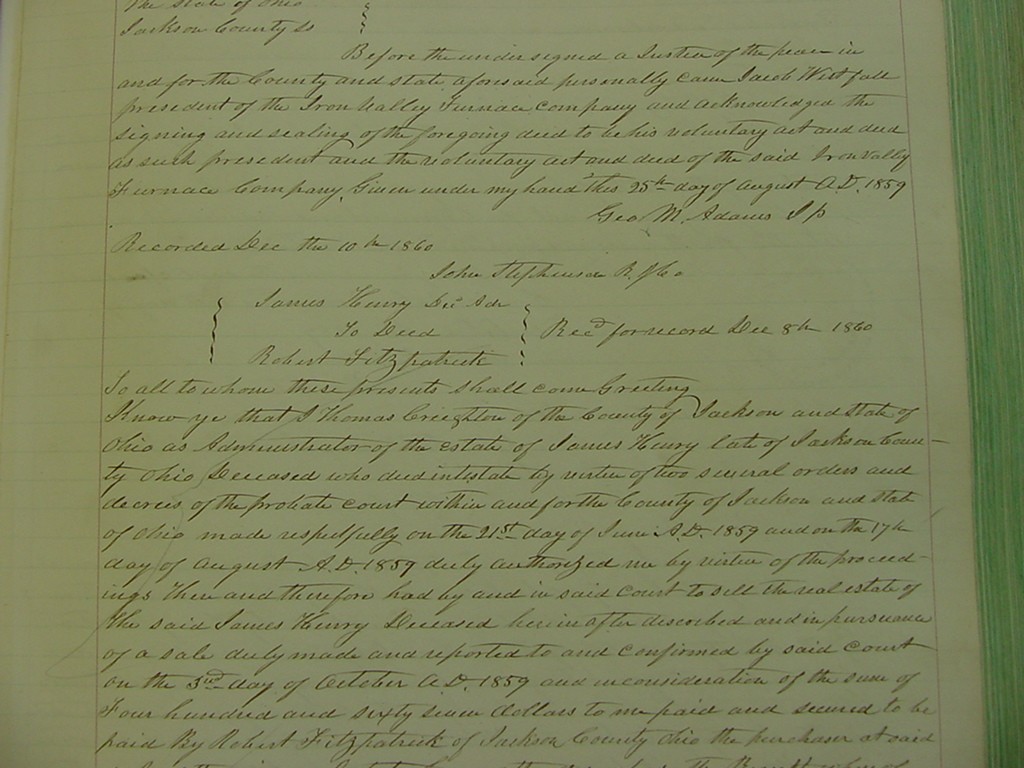 The State of Ohio
Jackson County ss
Before the undersigned a Justice of the peace in
and for the County and state aforesaid personally came Jacob Westfall
president of the Iron Valley Furnace Company and acknowledged the
signing and sealing of the foregoing deed to be his voluntary act and deed
as such president and the voluntary act and deed of the said Iron Vally
Furnace Company, Given under my hand this 25th day of August A.D. 1859
Geo M. Adams J p
Recorded Dec the 10th 1860
John Stephenson R. J Co
James Henry Decd Adr
To Deed
Robert Fitzpatrick
Recd for record Dec 8th 1860
To all to whom these presents shall come Greeting
Know ye that I Thomas Creighton of the County of Jackson and State of
Ohio as Administrator of the estate of James Henry late of Jackson Coun-
ty Ohio Deceased who died intestate by virtue of two several orders and
decrees of the probate court within and for the County of Jackson and State
of Ohio made respetfully on the 21st day of June A.D. 1859 and on the 17th
day of August A.D. 1859 duly authorized me by virtue of the proceed-
ings then and therefore had by and in said court to sell the real estate of
the said James Henry Deceased herein after described and in pursuance
of a sale duly made and reported to and confirmed by said court
on the 3rd day of October A.D. 1859 and in consideration of the sum of
Four hundred and sixty seven dollars to me paid and secured to be
paid by Robert Fitzpatrick of Jackson County Ohio the purchaser at said